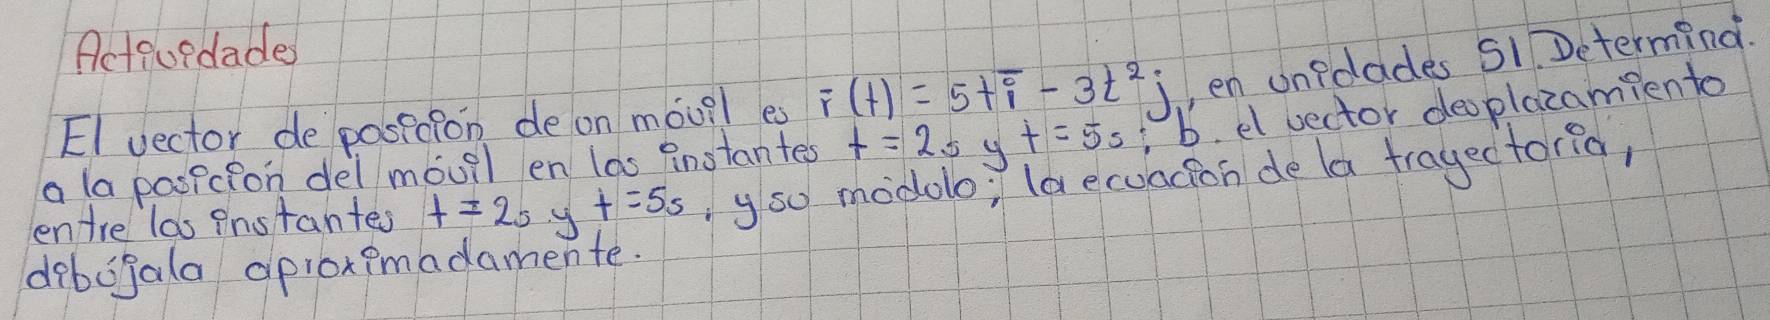 Actividades
El vector de posición de un móvil es r̄(t) = 5t ī - 3t² j, en unidades SI. Determina.
a la posición del móvil en los instantes t = 2s y t = 5s; b. el vector desplazamiento
entre los instantes t = 2s y t = 5s, y su módulo; la ecuación de la trayectoria,
dibújala aproximadamente.